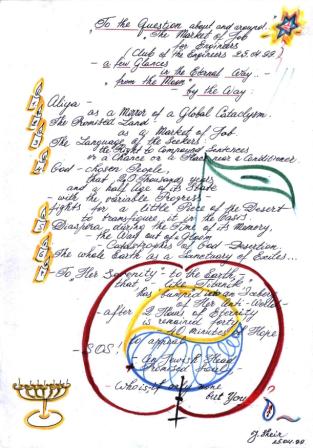 "To the Question about and around:
"The Market of Job
for Engineers
(Club of the Engineers 25.04.99)
- a few Glances
in the Eternal Way...
from the Moon"
- by the Way:
Aliya -
as a Mirror of a Global Cataclysm.
The Promised Land
as a Market of Job.
The Language of the Seekers
the Right to Compound Sentences
or a Chance or a Place near a Conditioner.
God - chosen People,
that 20 Thousands years
and a half Age of its State
- with the variable Progress
fights for a little Piece of the Desert
to transfigure it in the Oasis.
Diaspora, during the Time of its Memory,
- the Way out of a Room
- Catastrophes of God-Desertion.
The whole Earth as a Sanctuary of Exiles...
- To "Her Serenity" to the Earth,
that - like "Titanic"
has bumped into an Iceberg
of Her Anti-World -
- after 2 Hours of Eternity
is remained forty
minutes of Hope
to appeal
- SOS!
An Jewish Head
Promised Soul -
- Who is, if one none
but You?
25.04.99